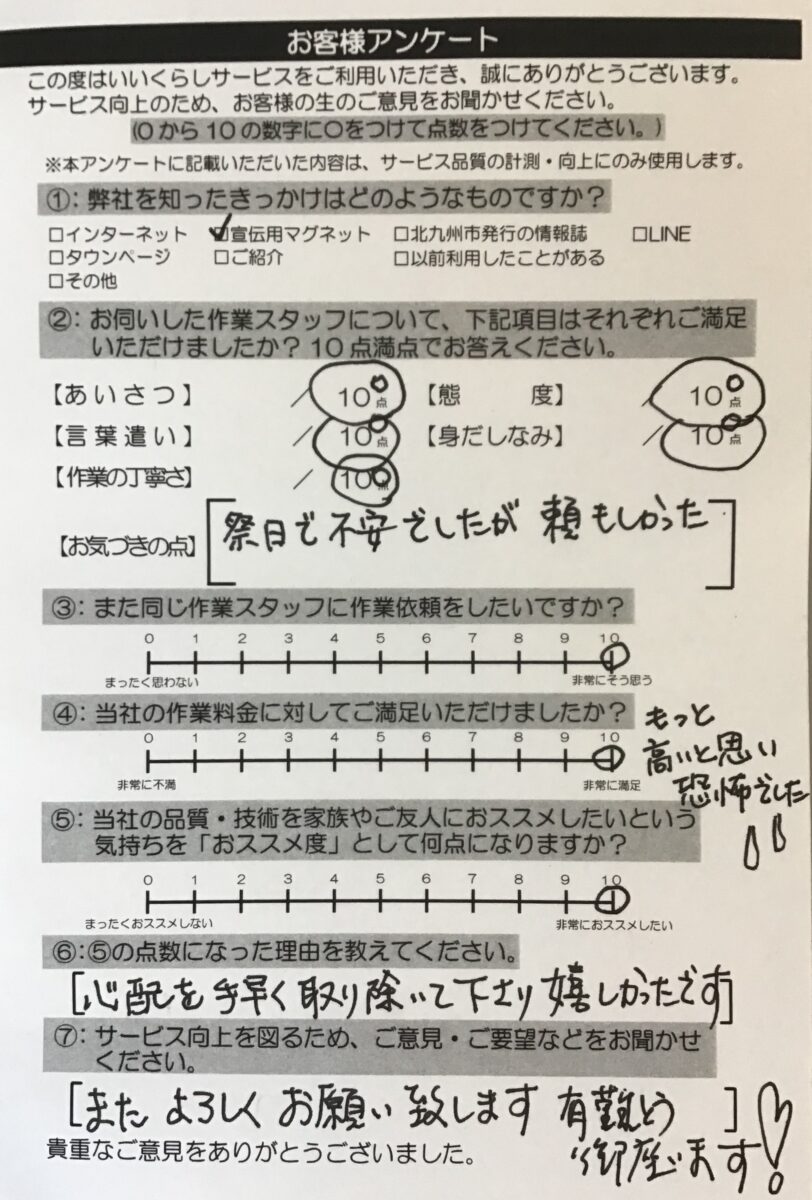 お客様アンケート
この度はいいくらしサービスをご利用いただき、誠にありがとうございます。
サービス向上のため、お客様の生のご意見をお聞かせください。
(0から10の数字に○をつけて点数をつけてください。)
※本アンケートに記載いただいた内容は、サービス品質の計測・向上にのみ使用します。
①：弊社を知ったきっかけはどのようなものですか？
□インターネット ☑宣伝用マグネット □北九州市発行の情報誌 □LINE
□タウンページ □ご紹介 □以前利用したことがある
□その他
②：お伺いした作業スタッフについて、下記項目はそれぞれご満足
いただけましたか？10点満点でお答えください。
【あいさつ】 ／10点 【態度】 ／10点
【言葉遣い】 ／10点 【身だしなみ】 ／10点
【作業の丁寧さ】 ／10点
【お気づきの点】[祭日で不安でしたが 頼もしかった]
③：また同じ作業スタッフに作業依頼をしたいですか？
0 1 2 3 4 5 6 7 8 9 10
まったく思わない 非常にそう思う
④：当社の作業料金に対してご満足いただけましたか？
0 1 2 3 4 5 6 7 8 9 10
非常に不満 非常に満足
もっと
高いと思い
恐怖でした
⑤：当社の品質・技術を家族やご友人におススメしたいという
気持ちを「おススメ度」として何点になりますか？
0 1 2 3 4 5 6 7 8 9 10
まったくおススメしない 非常におススメしたい
⑥：⑤の点数になった理由を教えてください。
[心配を手早く取り除いて下さり嬉しかったです]
⑦：サービス向上を図るため、ご意見・ご要望などをお聞かせ
ください。
[また よろしく お願い致します 有難とう]
御座います！
貴重なご意見をありがとうございました。